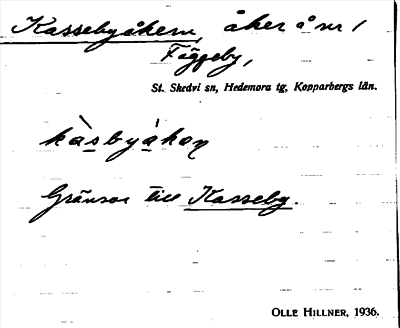 Kassebyåkern, åker å nr 1
Fäggeby,
St. Skedvi sn, Hedemora tg, Kopparbergs län.
kàsbyákaɲ
Gränsar till Kasseby.
OLLE HILLNER, 1936.